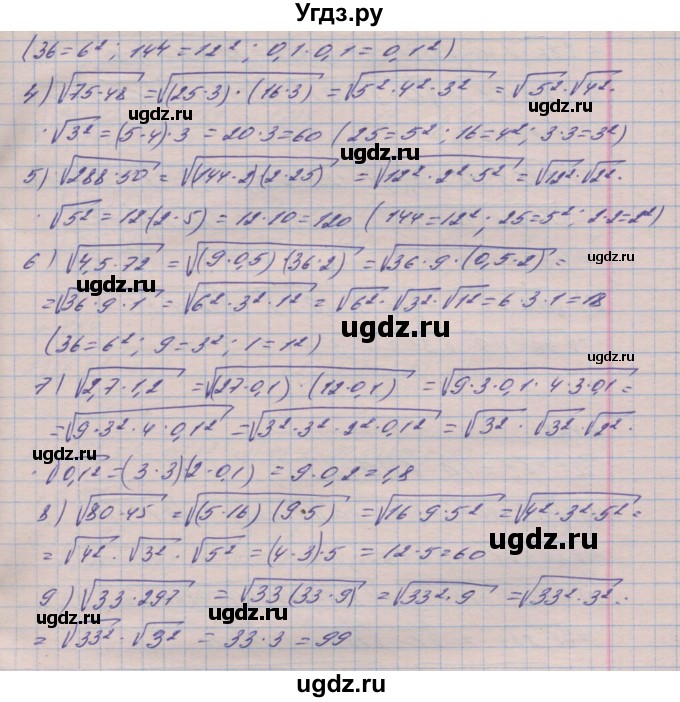 Угдз.ру
(36=6²; 144=12²; 0,1·0,1=0,1²)
4) √75·48 = √(25·3)·(16·3) = √5²·4²·3² = √5²·√4²·
·√3² = (5·4)·3 = 20·3=60 (25=5²; 16=4²; 3·3=3²)
5) √288·50 = √(144·2)(2·25) = √12²·2²·5² = √12²·√2²·
·√5² = 12(2·5) = 12·10=120 (144=12²; 25=5²; 2·2=2²)
6) √4,5·72 = √(9·0,5)(36·2) = √36·9·(0,5·2) =
=√36·9·1 = √6²·3²·1² = √6²·√3²·√1² = 6·3·1=18
(36=6²; 9=3²; 1=1²)
7) √2,7·1,2 = √(27·0,1)·(12·0,1) = √9·3·0,1·4·3·0,1 =
=√9·3²·4·0,1² = √3²·3²·2²·0,1² = √3²·√3²·√2²·
·√0,1² = (3·3)(2·0,1) = 9·0,2=1,8
8) √80·45 = √(5·16)(9·5) = √16·9·5² = √4²·3²·5² =
= √4²·√3²·√5² = (4·3)·5 = 12·5=60
9) √33·297 = √33(33·9) = √33²·9 = √33²·3² ·
= √33²·√3² = 33·3 = 99
ugdz.ru